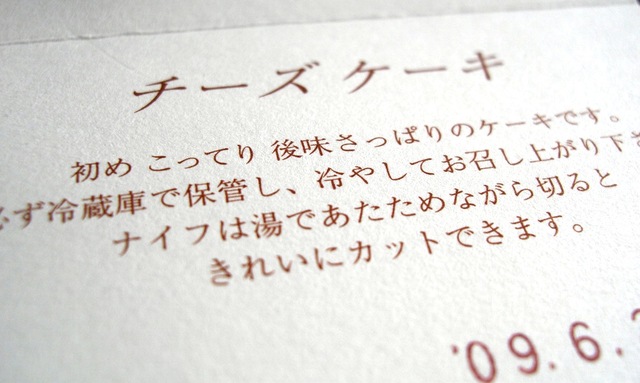 チーズ ケーキ
初め こってり 後味さっぱりのケーキです。
ず冷蔵庫で保管し、冷やしてお召し上がり下さ
ナイフは湯であたためながら切ると
きれいにカットできます。
'09.6.